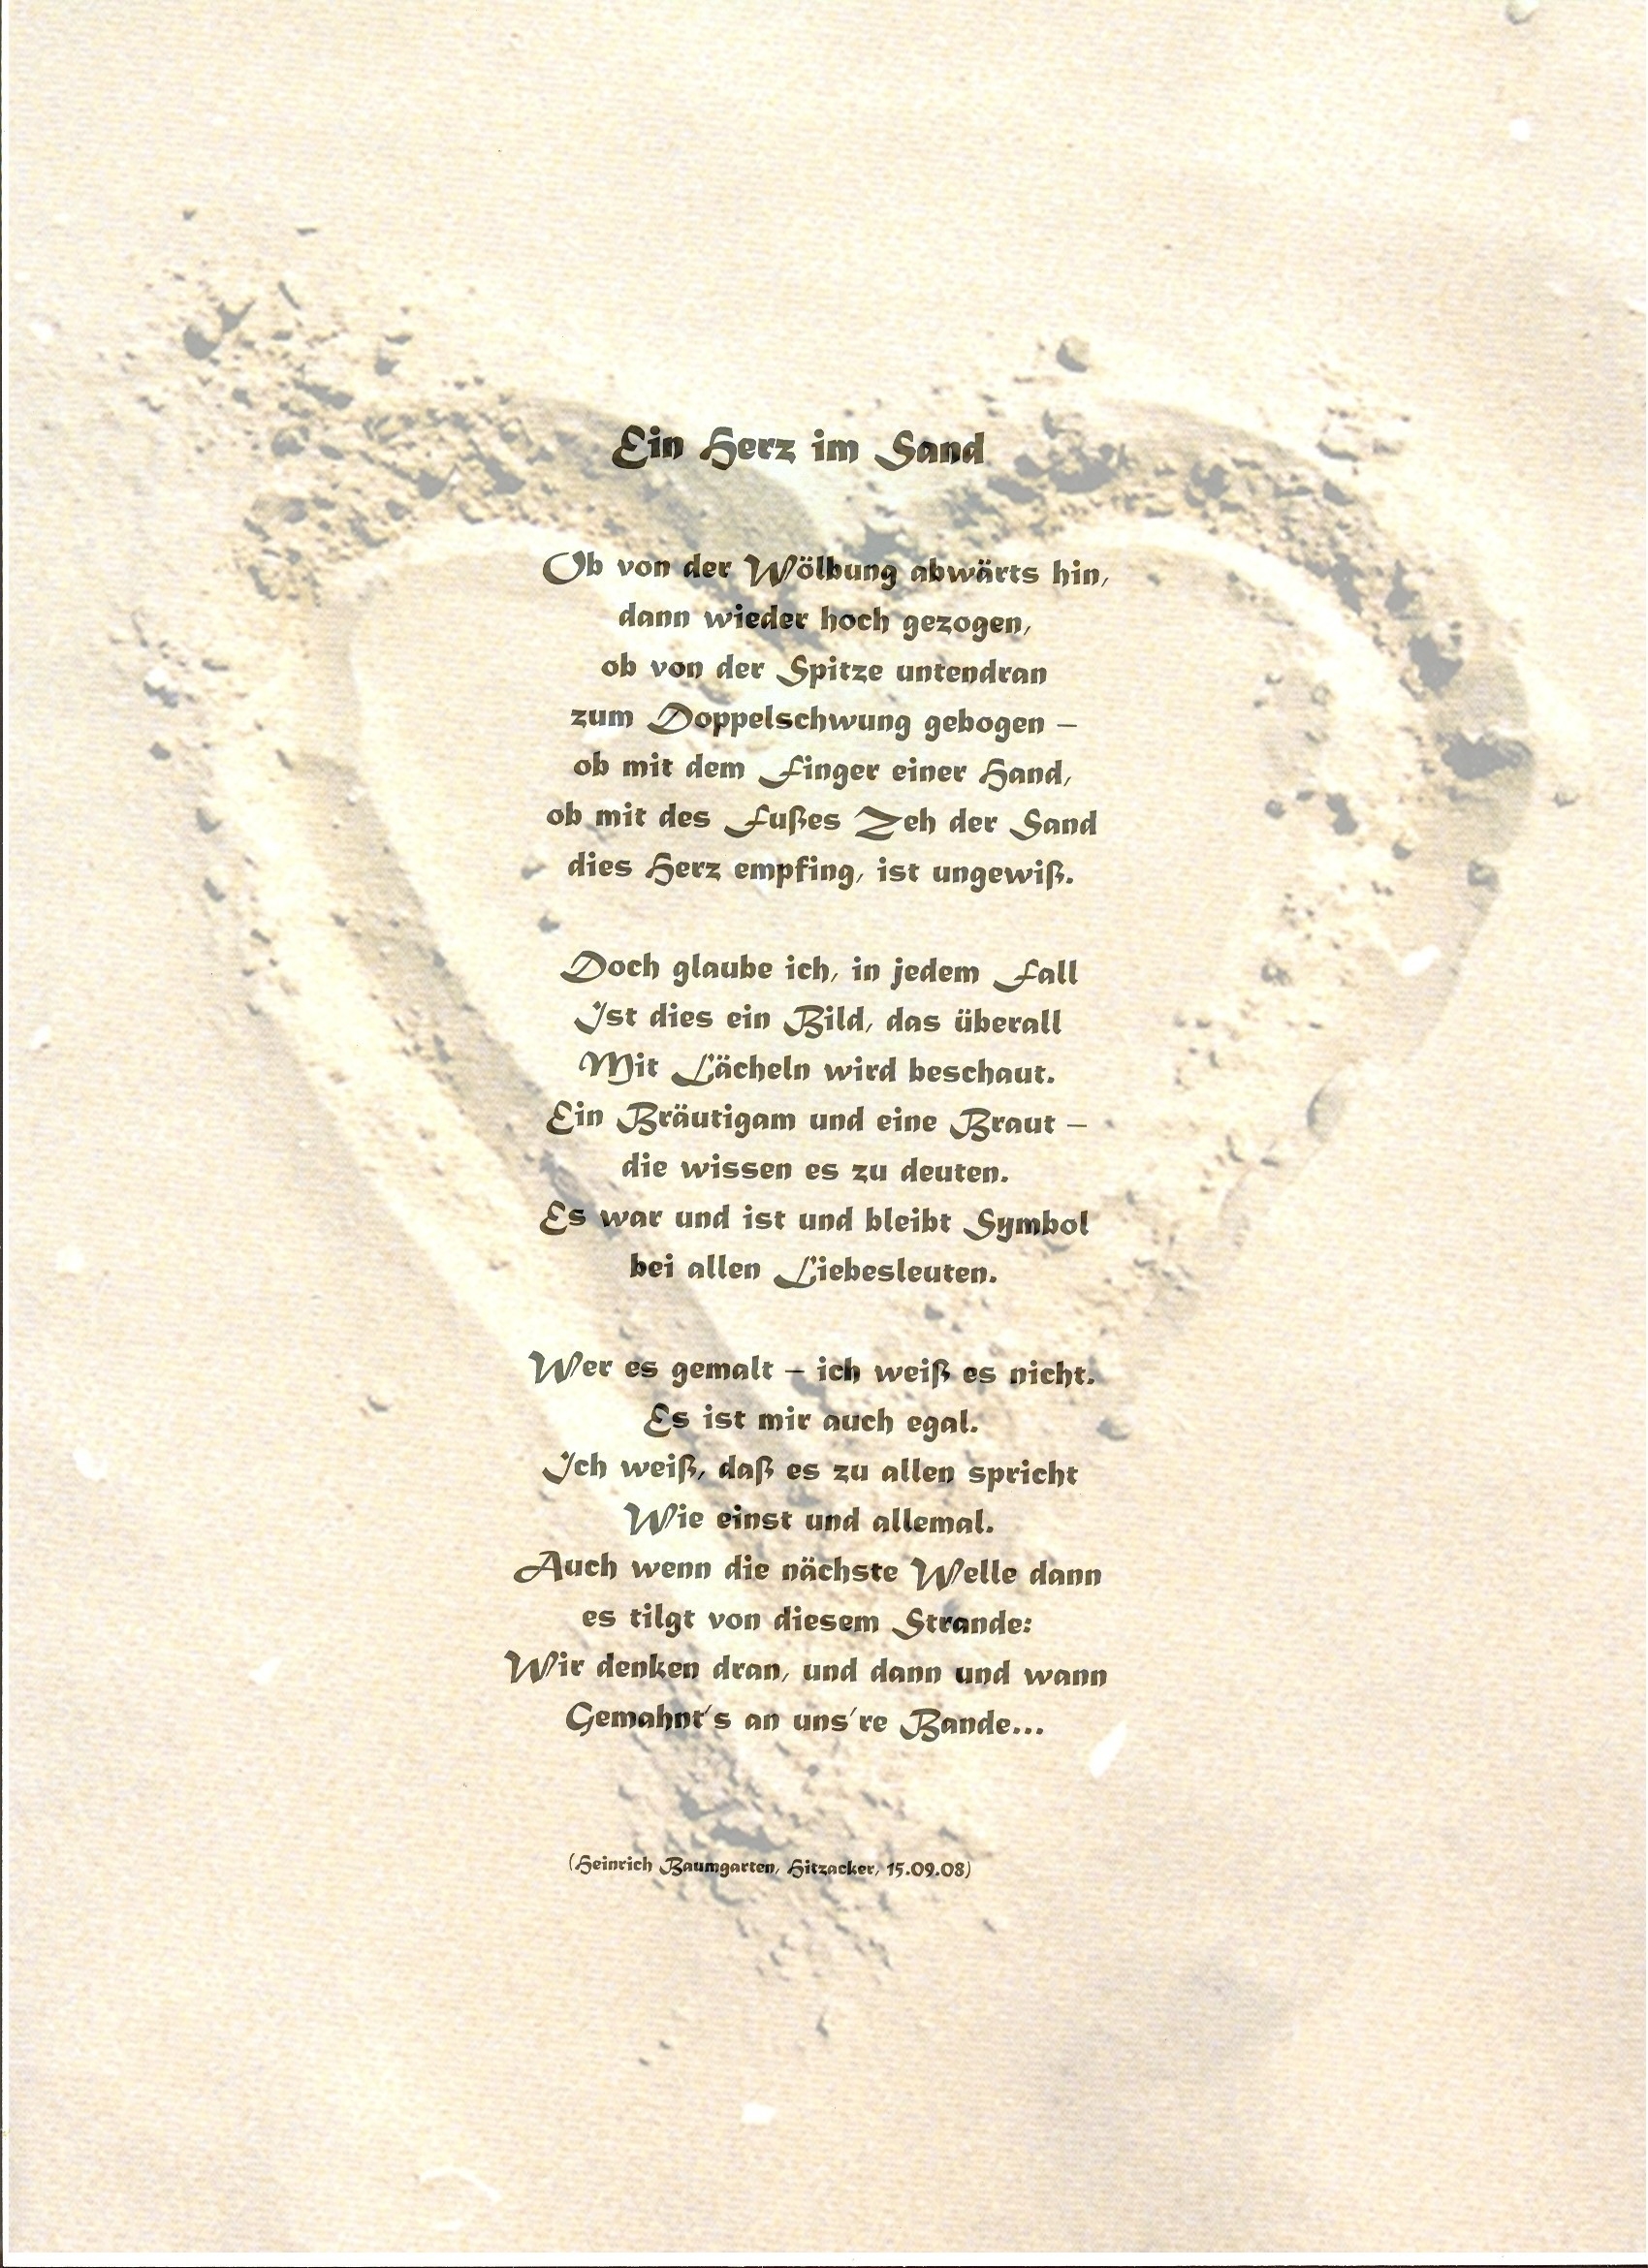 Ein Herz im Sand
Ob von der Wölbung abwärts hin,
dann wieder hoch gezogen,
ob von der Spitze untendran
zum Doppelschwung gebogen –
ob mit dem Finger einer Hand,
ob mit des Fußes Zeh der Sand
dies Herz empfing, ist ungewiß.
Doch glaube ich, in jedem Fall
Ist dies ein Bild, das überall
Mit Lächeln wird beschaut.
Ein Bräutigam und eine Braut –
die wissen es zu deuten.
Es war und ist und bleibt Symbol
bei allen Liebesleuten.
Wer es gemalt – ich weiß es nicht.
Es ist mir auch egal.
Ich weiß, daß es zu allen spricht
Wie einst und allemal.
Auch wenn die nächste Welle dann
es tilgt von diesem Strande:
Wir denken dran, und dann und wann
Gemahnt's an uns're Bande...
(Heinrich Baumgarten, Hitzacker, 15.09.08)